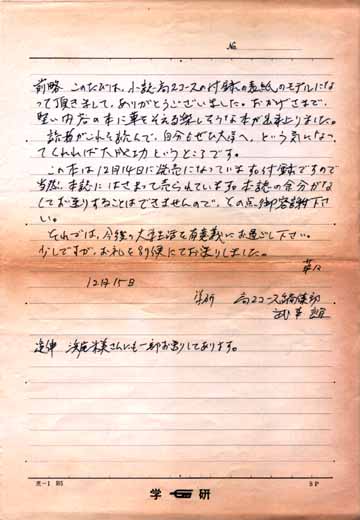 No.
前略 このたびは、小誌高2コースの付録の表紙のモデルにな
って頂きまして、ありがとうございました。おかげさまで、
堅い内容の本に華をそえる楽しそうな本が出来上りました。
読者がこれを読んで、自分もぜひ大学へ、という気になっ
てくれれば大成功というところです。
この本は12月14日に発売になっています付録ですので
当然、本誌にはさまって売られています。本誌の余分がな
くてお送りすることはできませんので、その点御容謝下さ
い。
それでは、今後の大学生活を有意義にお過し下さい。
少しですが、お礼を別便にてお送りしました。
草々
12月15日
学研 高2コース編集部
追伸 さんにも一部お送りしてあります。
学 研